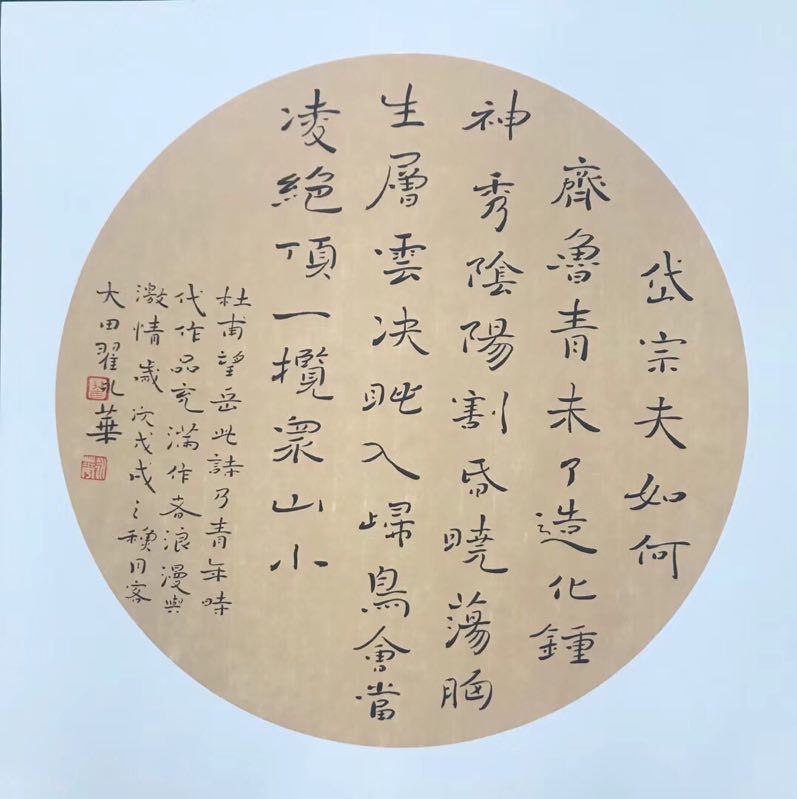 岱宗夫如何
齊魯青未了造化鍾
神秀陰陽割昏曉蕩胸
生層雲決眥入歸鳥會當
凌絕頂一攬衆山小
杜甫望岳此詩乃青年時
代作品充滿作者浪漫與
激情歲次戊戌之穐月客
大田翟永華